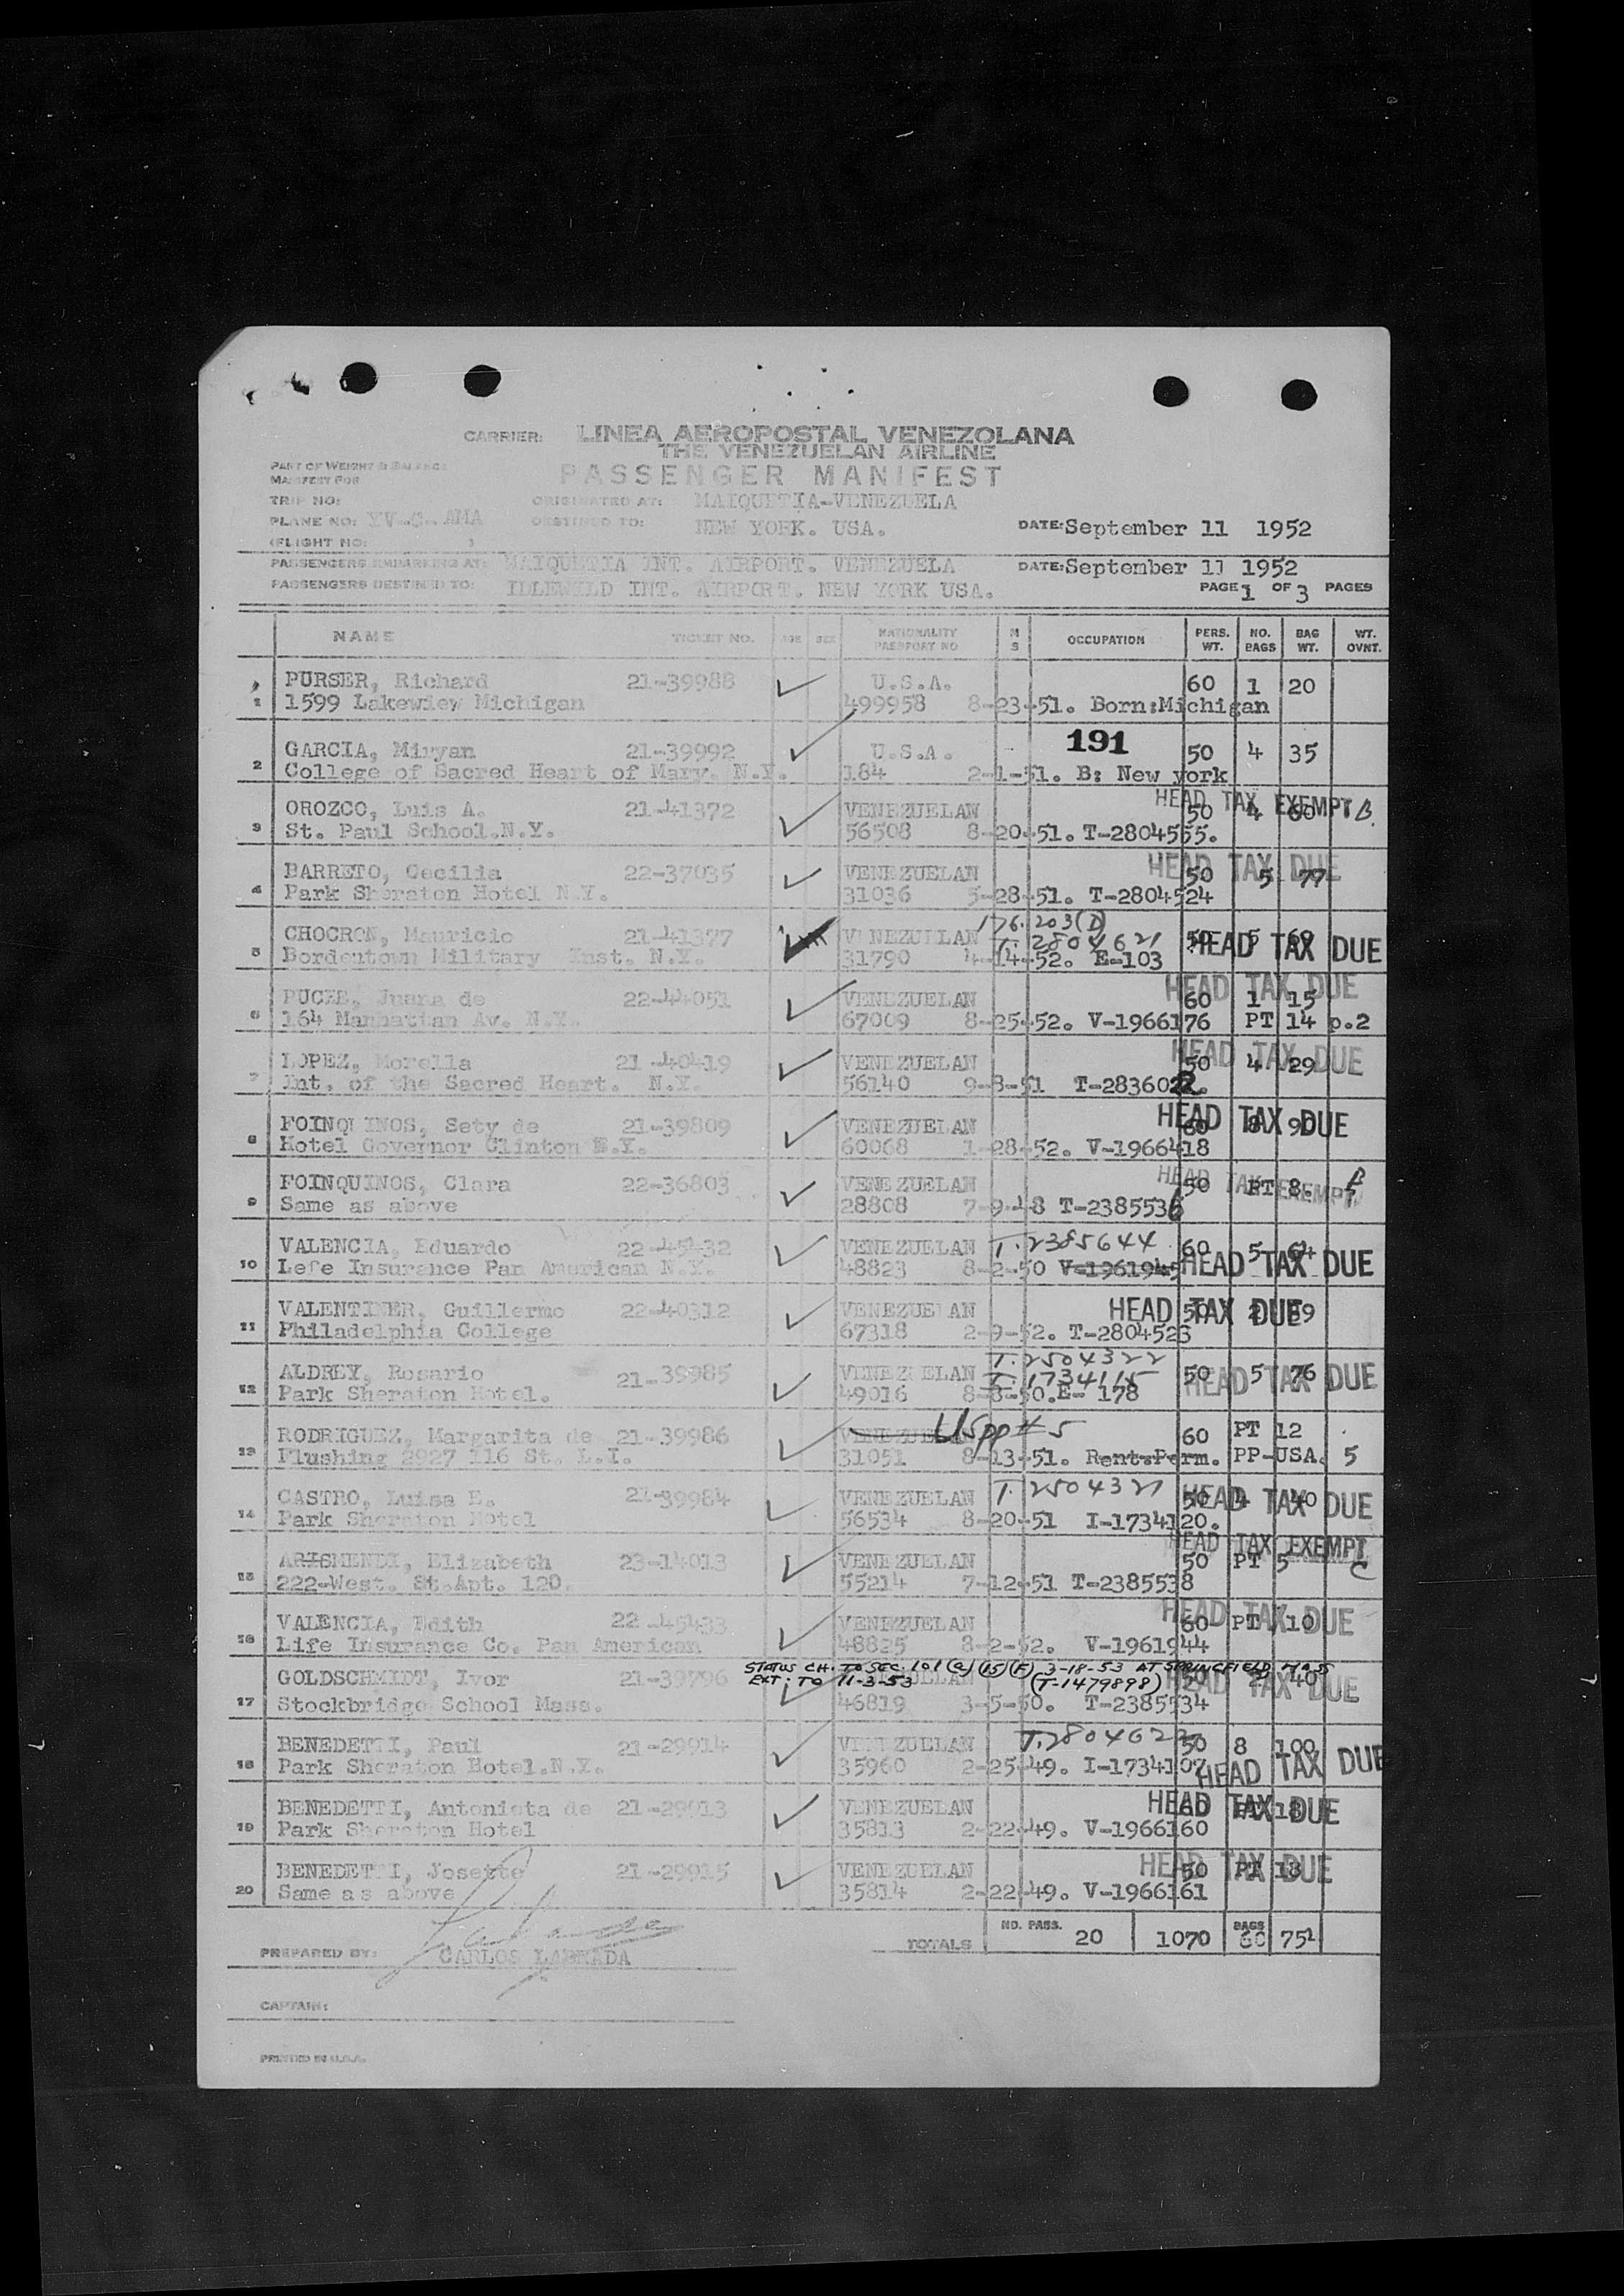 CARRIER: LINEA AEROPOSTAL VENEZOLANA
THE VENEZUELAN AIRLINE
PART OF WEIGHT & BALANCE
MANIFEST FOR
PASSENGER MANIFEST
TRIP NO: ORIGINATED AT: MAIQUETIA-VENEZUELA
PLANE NO: YV-C-AMA DESTINED TO: NEW YORK. USA. DATE: September 11 1952
(FLIGHT NO: )
PASSENGERS EMBARKING AT: MAIQUETIA INT. AIRPORT. VENEZUELA DATE: September 11 1952
PASSENGERS DESTINED TO: IDLEWILD INT. AIRPORT. NEW YORK USA. PAGE 1 OF 3 PAGES
NAME TICKET NO. AGE SEX NATIONALITY PASSPORT NO M S OCCUPATION PERS. WT. NO. BAGS BAG WT. WT. OVNT.
PURSER, Richard 21-39988 U.S.A. 60 1 20
1 1599 Lakewiew Michigan 499958 8-23-51. Born:Michigan
GARCIA, Miryan 21-39992 U.S.A. 191 50 4 35
2 College of Sacred Heart of Mary. N.Y. 184 2-1-51. B: New york
OROZCO, Luis A. 21-41372 VENEZUELAN 50 4 60 HEAD TAX EXEMPT B.
3 St. Paul School.N.Y. 56508 8-20-51. T-2804555.
BARRETO, Cecilia 22-37035 VENEZUELAN 50 5 77 HEAD TAX DUE
4 Park Sheraton Hotel N.Y. 31036 5-28-51. T-2804524
176.203(D)
CHOCRON, Mauricio 21-41377 VENEZUELAN T. 2804621 50 5 69 HEAD TAX DUE
5 Bordentown Military Inst. N.Y. 31790 4-14-52. E-103
PUCHE, Juana de 22-44051 VENEZUELAN 60 1 15 HEAD TAX DUE
6 164 Manhattan Av. N.Y. 67009 8-25-52. V-1966176 PT 14 p.2
LOPEZ, Morella 21-40419 VENEZUELAN 50 4 29 HEAD TAX DUE
7 Int. of the Sacred Heart. N.Y. 56140 9-8-51 T-2836022.
FOINQUINOS, Sety de 21-39809 VENEZUELAN 60 8 90 HEAD TAX DUE
8 Hotel Governor Clinton N.Y. 60068 1-28-52. V-1966418
FOINQUINOS, Clara 22-36803 VENEZUELAN 50 PT 8. HEAD TAX EXEMPT
9 Same as above 28808 7-9-48 T-2385536
VALENCIA, Eduardo 22-45432 VENEZUELAN T. 2385644 60 5 64 HEAD TAX DUE
10 Lefe Insurance Pan American N.Y. 48823 8-2-50 V-1961945
VALENTINER, Guillermo 22-40312 VENEZUELAN 50 2 59 HEAD TAX DUE
11 Philadelphia College 67318 2-9-52. T-2804523
T. 2504322
ALDREY, Rosario 21-39985 VENEZUELAN T. 1734115 50 5 76 HEAD TAX DUE
12 Park Sheraton Hotel. 49016 8-8-50.E- 178
RODRIGUEZ, Margarita de 21-39986 VENEZUELAN USpp# 5 60 PT 12
13 Flushing 2927 116 St. L.I. 31051 8-13-51. Rent:Perm. PP-USA. 5
CASTRO, Luisa E. 21-39984 VENEZUELAN T. 2504321 50 4 40 HEAD TAX DUE
14 Park Sheraton Hotel 56534 8-20-51 I-1734120.
ARISMENDI, Elizabeth 23-14013 VENEZUELAN 50 PT 5 HEAD TAX EXEMPT C
15 222-West. St.Apt. 120. 55214 7-12-51 T-2385538
VALENCIA, Edith 22-45433 VENEZUELAN 60 PT 10 HEAD TAX DUE
16 Life Insurance Co. Pan American 48825 8-2-52. V-1961944
STATUS CH. TO SEC. 101 (a) (15) (F) 3-18-53 AT SPRINGFIELD, MASS
GOLDSCHMIDT, Ivor 21-39796 EXT. TO 11-3-53 (T-1479898) 50 2 40 HEAD TAX DUE
17 Stockbridge School Mass. 46819 3-5-50. T-2385534
BENEDETTI, Paul 21-29914 VENEZUELAN T. 2804622 50 8 100 HEAD TAX DUE
18 Park Sheraton Hotel.N.Y. 35960 2-25-49. I-1734107
BENEDETTI, Antonieta de 21-29913 VENEZUELAN 60 PT 18 HEAD TAX DUE
19 Park Sheraton Hotel 35813 2-22-49. V-1966160
BENEDETTI, Josette 21-29915 VENEZUELAN 50 PT 13 HEAD TAX DUE
20 Same as above 35814 2-22-49. V-1966161
TOTALS NO. PASS. 20 1070 BAGS 60 751
PREPARED BY: CARLOS LABRADA
CAPTAIN:
PRINTED IN U.S.A.